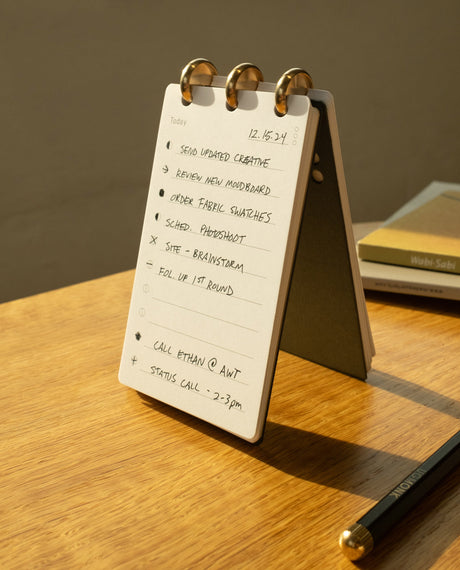 Today
12.15.24
SEND UPDATED CREATIVE
REVIEW NEW MOODBOARD
ORDER FABRIC SWATCHES
SCHED. PHOTOSHOOT
SITE - BRAINSTORM
FOL. UP 1ST ROUND
CALL ETHAN @ AWT
STATUS CALL - 2-3pm
Wabi-Sabi